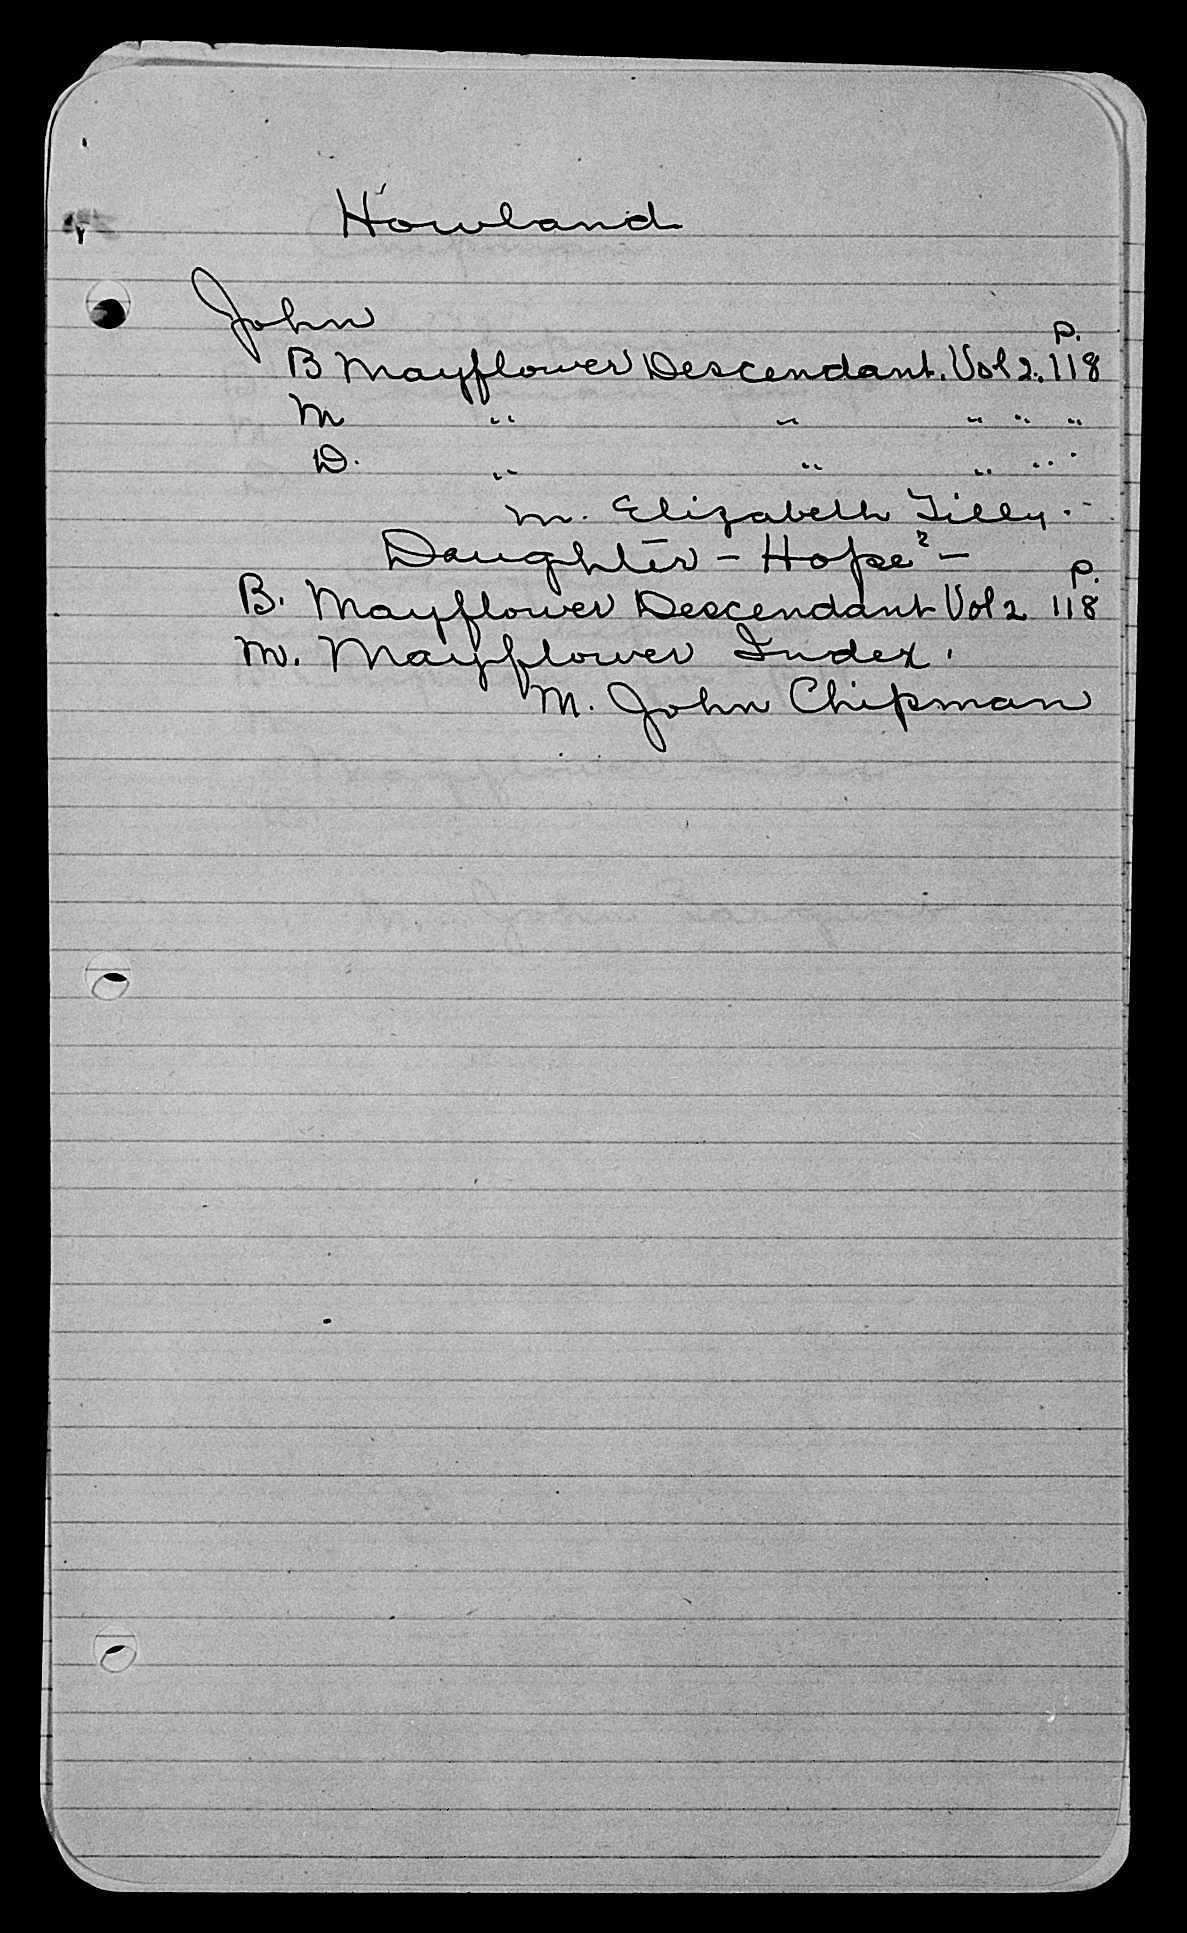 Howland
John
p.
B Mayflower Descendant. Vol 2. 118
M " " " " "
D. " " " " "
m. Elizabeth Tilly.
Daughter - Hope² -
p.
B. Mayflower Descendant Vol 2 118
M. Mayflower Index.
M. John Chipman